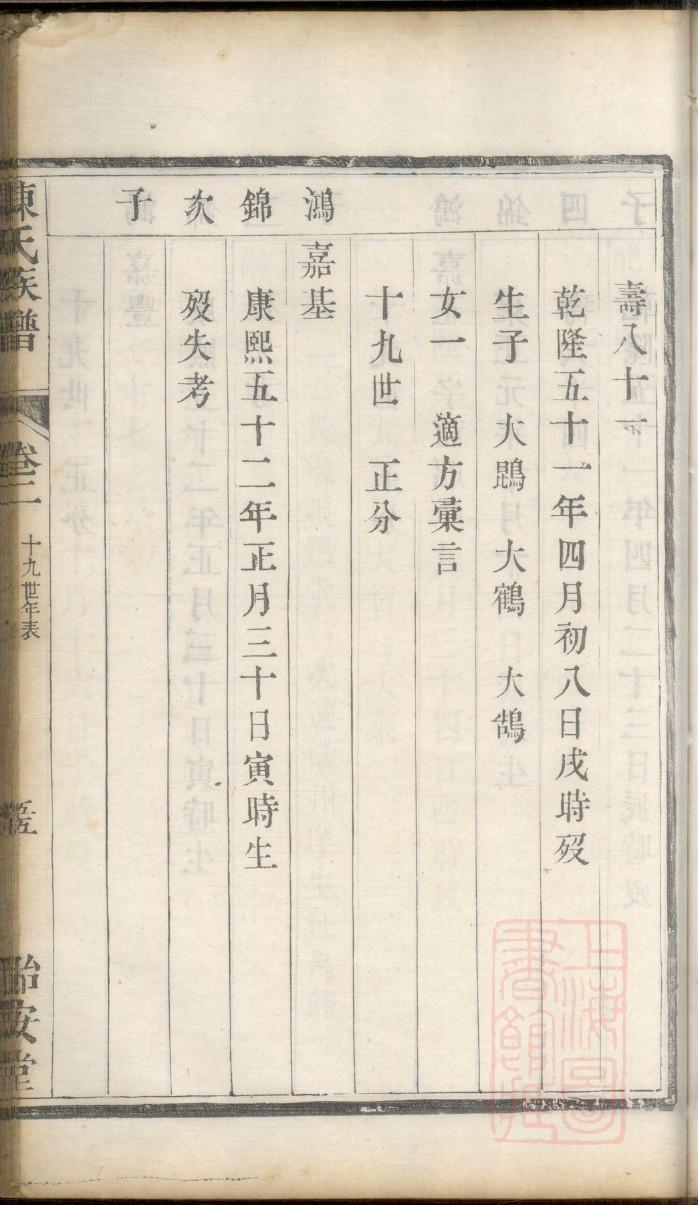 壽八十一
乾隆五十一年四月初八日戌時歿
生子 大鵾 大鶴 大鵠
女一 適方彙言
十九世 正分
鴻 嘉基
錦 康熙五十二年正月三十日寅時生
次 歿失考
子
陳氏族譜
卷二
十九世年表
怡安堂
上海圖書館藏